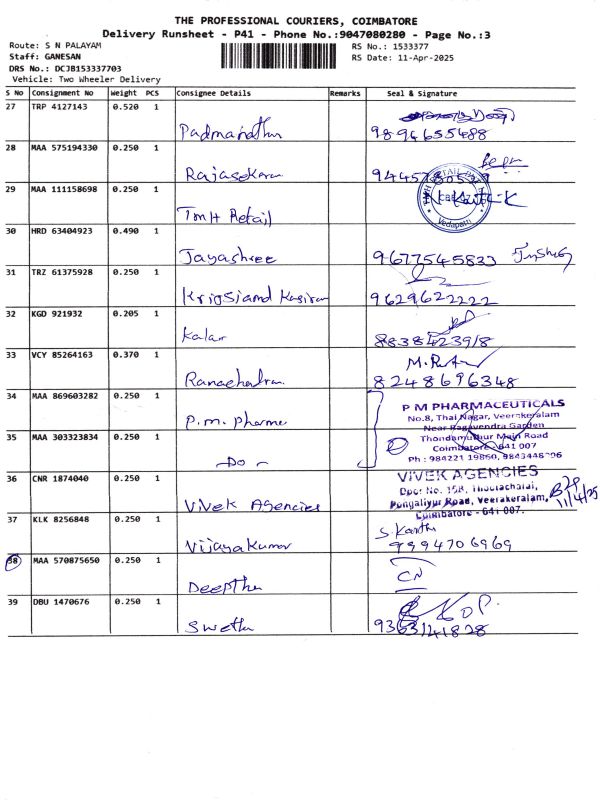 THE PROFESSIONAL COURIERS, COIMBATORE
Delivery Runsheet - P41 - Phone No.:9047080280 - Page No.:3
Route: S N PALAYAM
Staff: GANESAN
DRS No.: DCJB153337703
Vehicle: Two Wheeler Delivery
RS No.: 1533377
RS Date: 11-Apr-2025
S No Consignment No Weight PCS Consignee Details Remarks Seal & Signature
27 TRP 4127143 0.520 1
Padmanathan 9894655488
28 MAA 575194330 0.250 1
Rajasekaran
29 MAA 111158698 0.250 1
TMH Retail
Vedapatti
30 HRD 63404923 0.490 1
Jayashree 9677545823
31 TRZ 61375928 0.250 1
9629622222
32 KGD 921932 0.205 1
Kalar 8838423918
33 VCY 85264163 0.370 1
8248696348
34 MAA 869603282 0.250 1
P.M. Pharma
35 MAA 303323834 0.250 1
-Do-
P M PHARMACEUTICALS
No.8, Thai Nagar, Veerakeralam
Near Ragavendra Garden
Thondamuthur Main Road
Coimbatore - 641 007
Ph : 984221 19860,
36 CNR 1874040 0.250 1
Vivek Agencies
VIVEK AGENCIES
Door No. 15B,
Road, Veerakeralam,
Coimbatore - 641 007.
11/4/25
37 KLK 8256848 0.250 1
Vijayakumar
S Karthi
9994706969
38 MAA 570875650 0.250 1
Deeptha
39 DBU 1470676 0.250 1
Swetha 9363141828